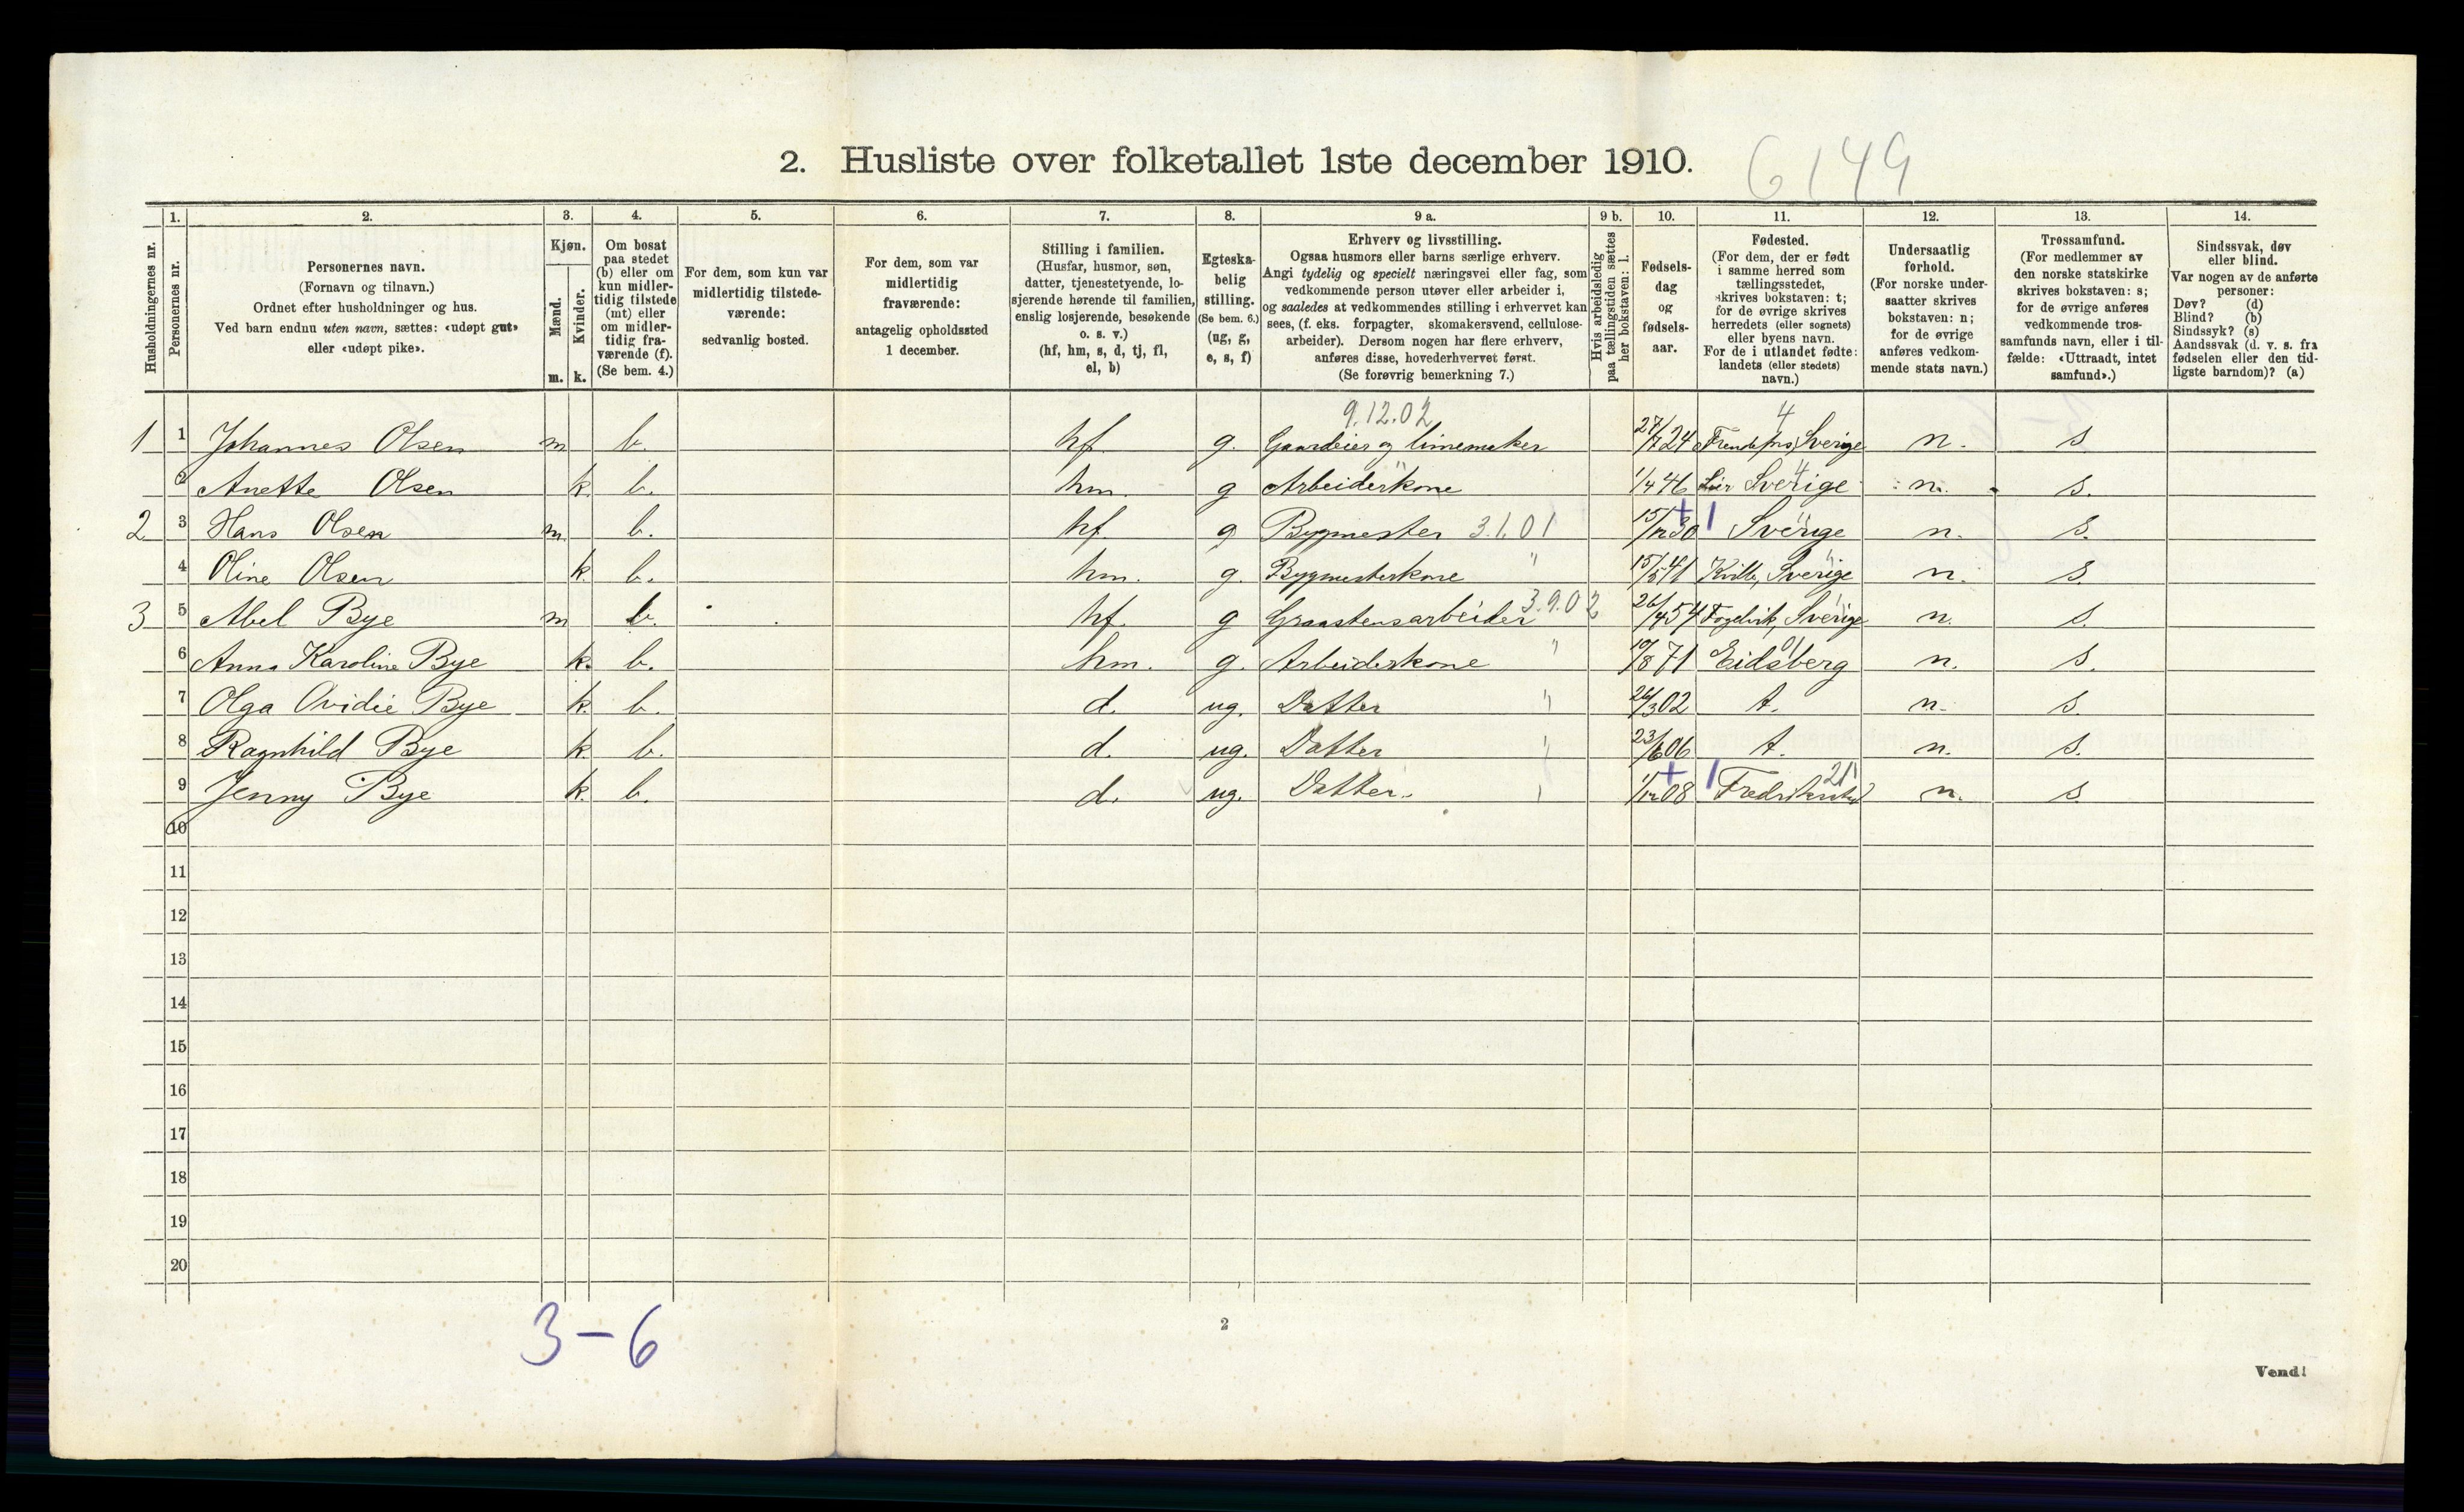 2. Husliste over folketallet 1ste december 1910.
6149
Husholdningernes nr.
1. Personernes nr.
2. Personernes navn. (Fornavn og tilnavn.) Ordnet efter husholdninger og hus. Ved barn endnu uten navn, sættes: «udøpt gut» eller «udøpt pike».
3. Kjøn. Mænd. m. Kvinder. k.
4. Om bosat paa stedet (b) eller om kun midlertidig tilstede (mt) eller om midlertidig fraværende (f). (Se bem. 4.)
5. For dem, som kun var midlertidig tilstedeværende: sedvanlig bosted.
6. For dem, som var midlertidig fraværende: antagelig opholdssted 1 december.
7. Stilling i familien. (Husfar, husmor, søn, datter, tjenestetyende, losjerende hørende til familien, enslig losjerende, besøkende o. s. v.) (hf, hm, s, d, tj, fl, el, b)
8. Egteskabelig stilling. (Se bem. 6.) (ug, g, e, s, f)
9 a. Erhverv og livsstilling. Ogsaa husmors eller barns særlige erhverv. Angi tydelig og specielt næringsvei eller fag, som vedkommende person utøver eller arbeider i, og saaledes at vedkommendes stilling i erhvervet kan sees, (f. eks. forpagter, skomakersvend, cellulosearbeider). Dersom nogen har flere erhverv, anføres disse, hovederhvervet først. (Se forøvrig bemerkning 7.)
9 b. Hvis arbeidsledig paa tællingstiden sættes her bokstaven: l.
10. Fødselsdag og fødselsaar.
11. Fødested. (For dem, der er født i samme herred som tællingsstedet, skrives bokstaven: t; for de øvrige skrives herredets (eller sognets) eller byens navn. For de i utlandet fødte: landets (eller stedets) navn.)
12. Undersaatlig forhold. (For norske undersaatter skrives bokstaven: n; for de øvrige anføres vedkommende stats navn.)
13. Trossamfund. (For medlemmer av den norske statskirke skrives bokstaven: s; for de øvrige anføres vedkommende trossamfunds navn, eller i tilfælde: «Uttraadt, intet samfund».)
14. Sindssvak, døv eller blind. Var nogen av de anførte personer: Døv? (d) Blind? (b) Sindssyk? (s) Aandssvak (d. v. s. fra fødselen eller den tidligste barndom)? (a)
9.12.02 4
1 1 Johannes Olsen m b. hf. g. Gaardeier og limemaker 27/7 24 Sverige n. s
2 Anette Olsen k. b. hm. g Arbeiderkone " 1/4 46 Sverige 4 n. s.
2 3 Hans Olsen m b. hf. g Bygmester 3.1.01 15/12 30 + 1 Sverige " n. s.
4 Oline Olsen k. b. hm. g. Bygmesterkone " 15/5 41 Kville, Sverige " n. s.
3 5 Abel Bye m b. hf. g Graastensarbeider 3.9.02 26/4 54 Sverige n. s.
6 Anna Karoline Bye k. b. hm. g. Arbeiderkone " 10/8 71 Eidsberg 01 n. s.
7 Olga Ovidie Bye k. b. d. ug. Datter " 26/3 02 t. n. s.
8 Ragnhild Bye k. b. d. ug. Datter " 23/6 06 t. n. s.
9 Jenny Bye k. b. d. ug. Datter. " 1/12 08 + 1 Fredrikstad 21 n. s
10
11
12
13
14
15
16
17
18
19
20
3-6
2
Vend!